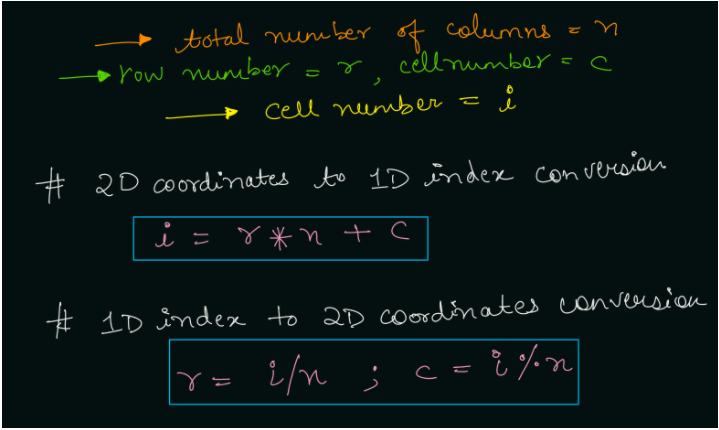 → total number of columns = n
→ row number = r, cellnumber = c
→ cell number = i
# 2D coordinates to 1D index conversion
i = r * n + c
# 1D index to 2D coordinates conversion
r = i/n ; c = i % n